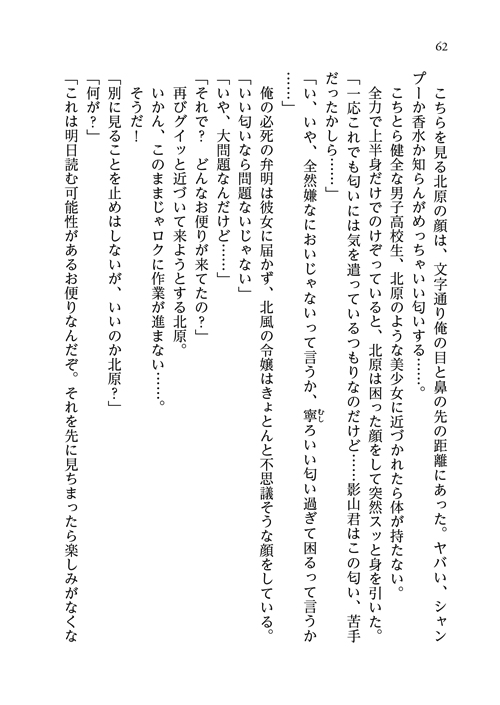 62
　こちらを見る北原の顔は、文字通り俺の目と鼻の先の距離にあった。ヤバい、シャン
プーか香水か知らんがめっちゃいい匂いする……。
　こちとら健全な男子高校生、北原のような美少女に近づかれたら体が持たない。
　全力で上半身だけでのけぞっていると、北原は困った顔をして突然スッと身を引いた。
「一応これでも匂いには気を遣っているつもりなのだけど……影山君はこの匂い、苦手
だったかしら……」
「い、いや、全然嫌なにおいじゃないって言うか、寧ろいい匂い過ぎて困るって言うか
……」
　俺の必死の弁明は彼女に届かず、北風の令嬢はきょとんと不思議そうな顔をしている。
「いい匂いなら問題ないじゃない」
「いや、大問題なんだけど……」
「それで？　どんなお便りが来てたの？」
　再びグイッと近づいて来ようとする北原。
　いかん、このままじゃロクに作業が進まない……。
　そうだ！
「別に見ることを止めはしないが、いいのか北原？」
「何が？」
「これは明日読む可能性があるお便りなんだぞ。それを先に見ちまったら楽しみがなくな